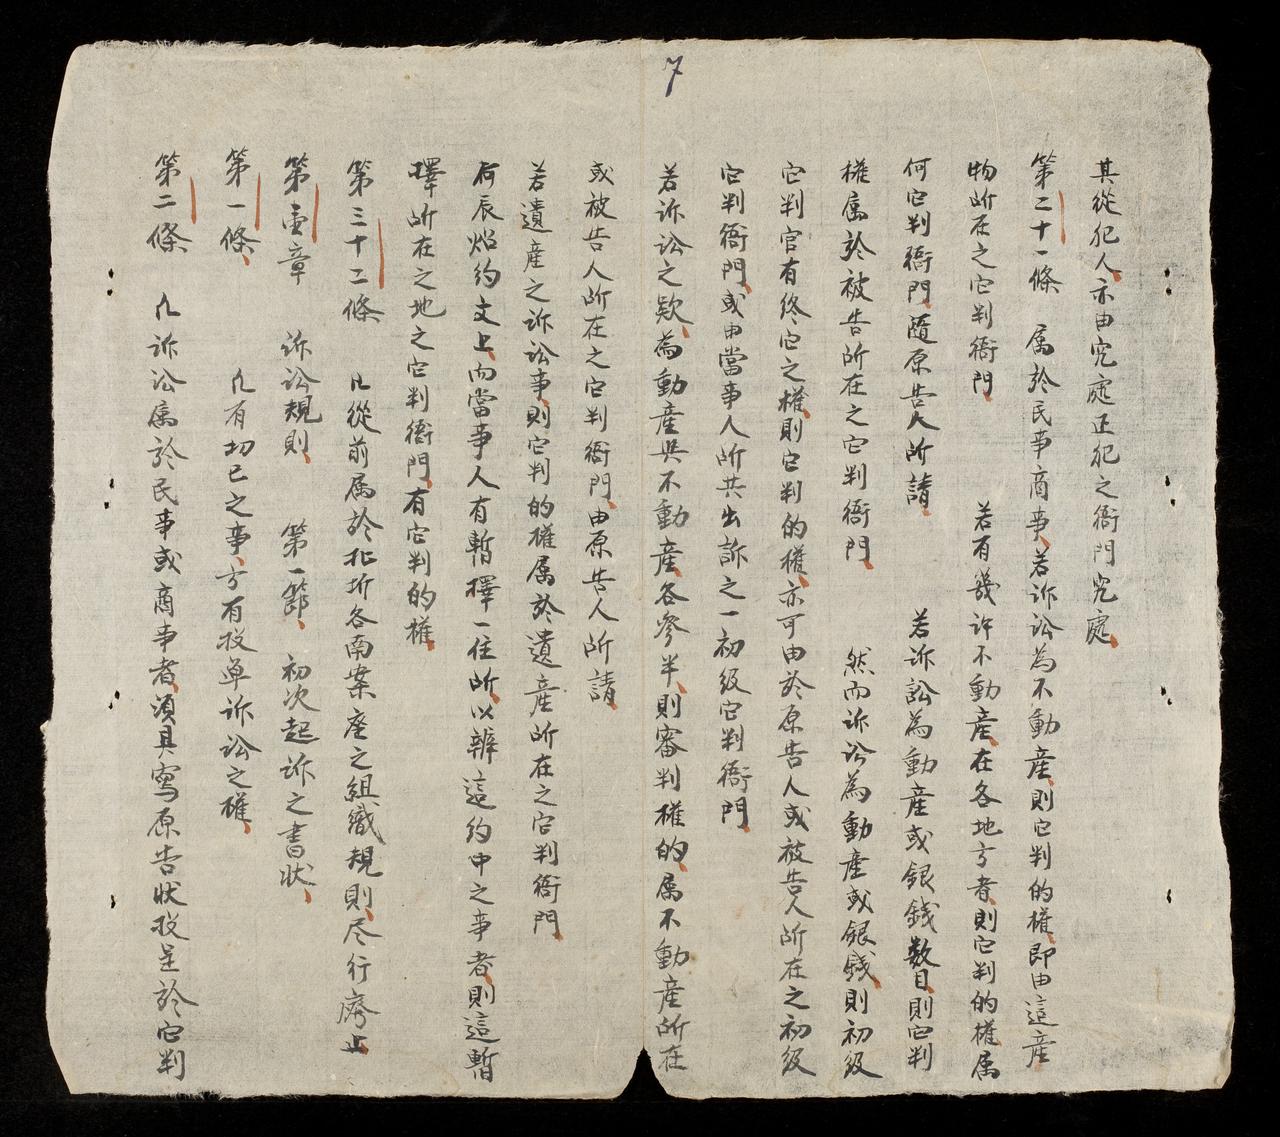 7
其從犯人亦由究處正犯之衙門究處
第二十一條 属於民事商事若訴訟為不動產則它判的權即由這產
物所在之它判衙門 若有幾許不動產在各地方者則它判的權属
何它判衙門隨原告人所請 若訴訟為動產或銀錢數目則它判
權属於被告所在之它判衙門 然而訴訟為動產或銀錢則初級
它判官有終它之權則它判的權亦可由於原告人或被告人所在之初級
它判衙門或由當事人所共出訴之一初級它判衙門
若訴訟之欵為動產與不動產各參半則審判權的属不動產所在
或被告人所在之它判衙門由原告人所請
若遺產之訴訟事則它判的權属於遺產所在之它判衙門
何辰炤約文上而當事人有暫擇一住所以辨這約中之事者則這暫
擇所在之地之它判衙門有它判的權
第三十二條 凡從前属於北圻各南案座之組織規則尽行廢止
第壹章 訴訟規則 第一節 初次起訴之書状
第一條 凡有切已之事方有投单訴訟之權
第二條 凡訴訟属於民事或商事者須具寫原告狀投呈於它判